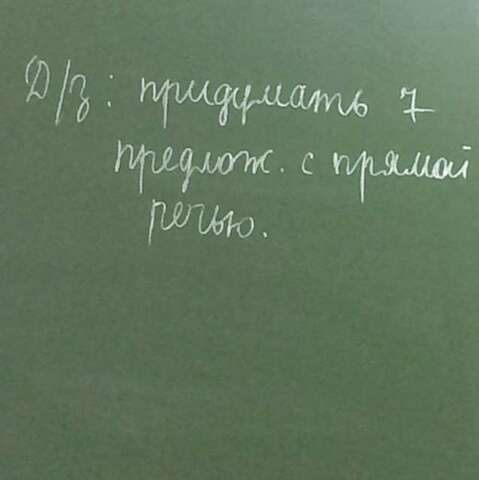 Д/з: придумать 7
предлож. с прямой
речью.